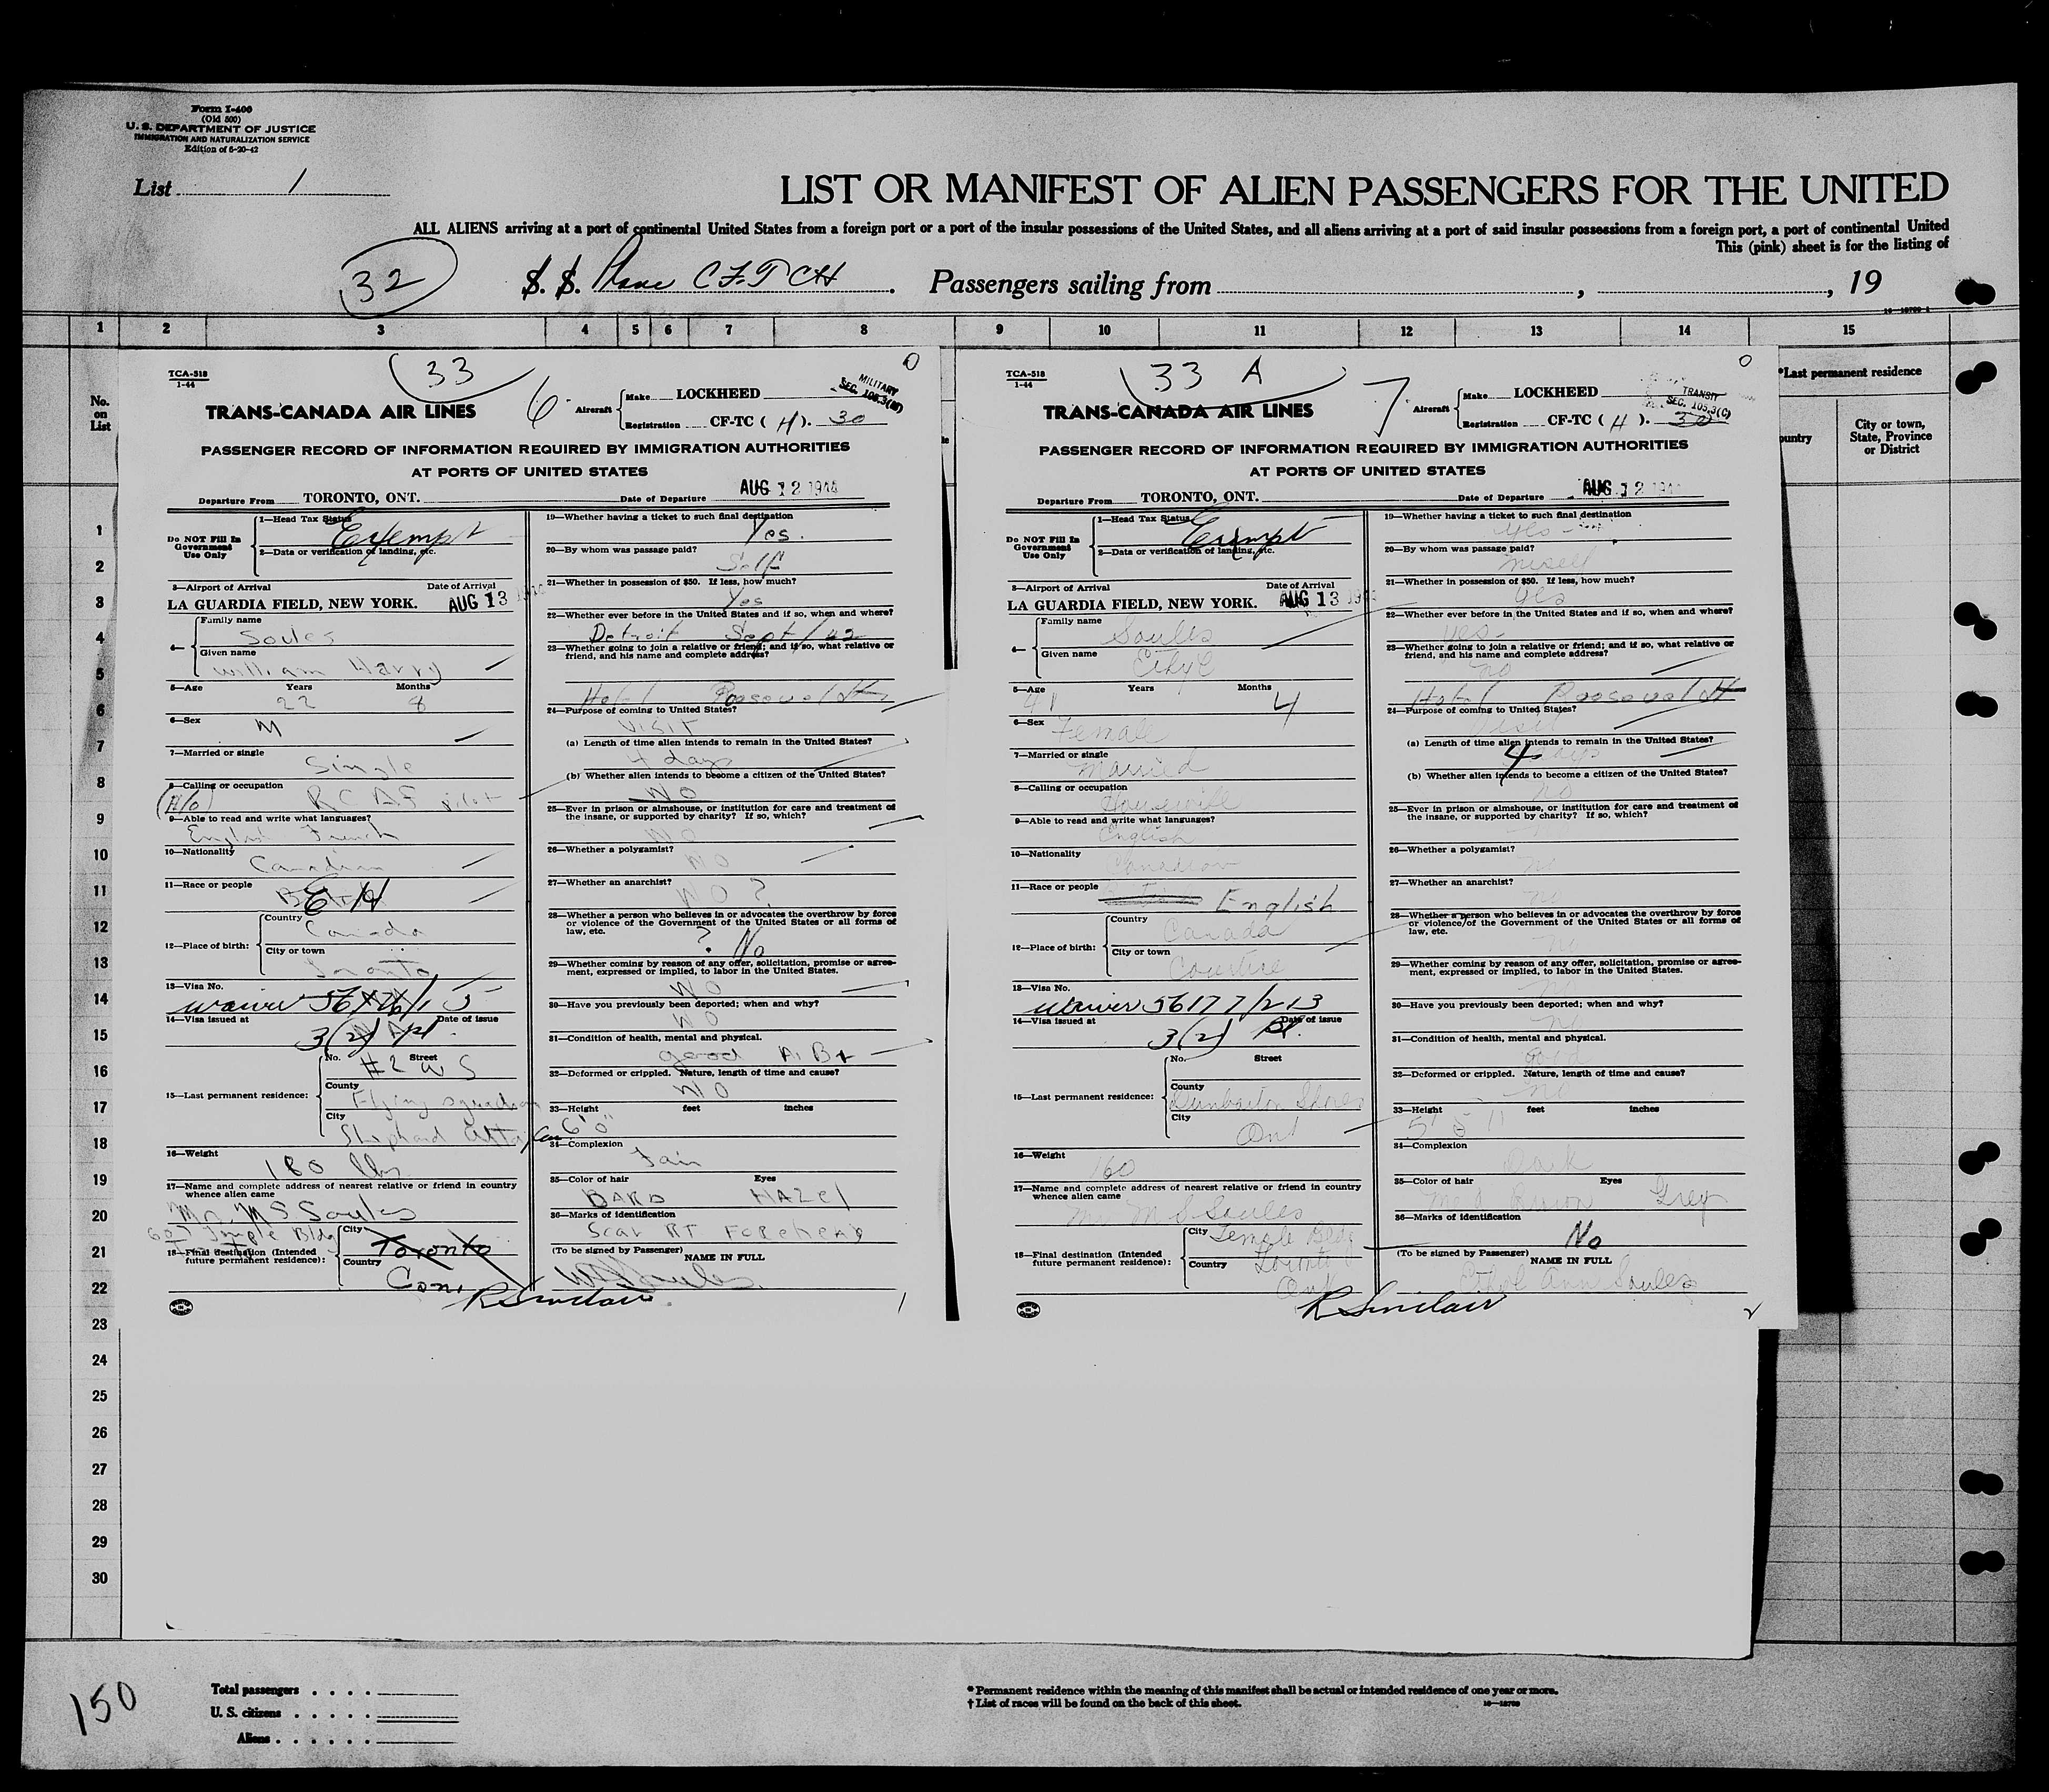 Form I-400
(Old 500)
U. S. DEPARTMENT OF JUSTICE
IMMIGRATION AND NATURALIZATION SERVICE
Edition of 6-20-42
List 1
LIST OR MANIFEST OF ALIEN PASSENGERS FOR THE UNITED
ALL ALIENS arriving at a port of continental United States from a foreign port or a port of the insular possessions of the United States, and all aliens arriving at a port of said insular possessions from a foreign port, a port of continental United
This (pink) sheet is for the listing of
32
S. S. Plane CF.TCH. Passengers sailing from , , 19
1 2 3 4 5 6 7 8 9 10 11 12 13 14 15
No. on List
*Last permanent residence
Country
City or town, State, Province or District
TCA-518
1-44
33
6
MILITARY
SEC. 105.3(M)
TRANS-CANADA AIR LINES
Aircraft
Make LOCKHEED
Registration CF-TC ( H ). 30
PASSENGER RECORD OF INFORMATION REQUIRED BY IMMIGRATION AUTHORITIES
AT PORTS OF UNITED STATES
Departure From TORONTO, ONT. Date of Departure AUG 12 1944
Do NOT Fill In Government Use Only
1—Head Tax Status Exempt
2—Data or verification of landing, etc.
3—Airport of Arrival Date of Arrival
LA GUARDIA FIELD, NEW YORK. AUG 13
4— Family name
Soules
Given name
William Harry
5—Age Years Months
22 8
6—Sex
M
7—Married or single
Single
8—Calling or occupation
RCAF pilot
9—Able to read and write what languages?
English French
10—Nationality
Canadian
11—Race or people
12—Place of birth: Country
Canada
City or town
Toronto
13—Visa No.
waiver
14—Visa issued at Date of issue
3(2)
15—Last permanent residence: No. Street
#2 W S
County
Flying squadron
City
Shephard Alta
16—Weight
180 lbs
17—Name and complete address of nearest relative or friend in country whence alien came
Mr. M S Soules
Temple Bldg
18—Final destination (Intended future permanent residence): City
Toronto
Country
Can.
19—Whether having a ticket to such final destination
Yes.
20—By whom was passage paid?
Self
21—Whether in possession of $50. If less, how much?
Yes
22—Whether ever before in the United States and if so, when and where?
Detroit Sept/42
23—Whether going to join a relative or friend; and if so, what relative or friend, and his name and complete address?
Hotel Roosevelt
24—Purpose of coming to United States?
VISIT
(a) Length of time alien intends to remain in the United States?
4 days
(b) Whether alien intends to become a citizen of the United States?
NO
25—Ever in prison or almshouse, or institution for care and treatment of the insane, or supported by charity? If so, which?
NO
26—Whether a polygamist?
NO
27—Whether an anarchist?
NO ?
28—Whether a person who believes in or advocates the overthrow by force or violence of the Government of the United States or all forms of law, etc.
? No
29—Whether coming by reason of any offer, solicitation, promise or agreement, expressed or implied, to labor in the United States.
NO
30—Have you previously been deported; when and why?
NO
31—Condition of health, mental and physical.
good
32—Deformed or crippled. Nature, length of time and cause?
NO
33—Height feet inches
6'0"
34—Complexion
Fair
35—Color of hair Eyes
HAZEL
36—Marks of identification
Scar RT Forehead
(To be signed by Passenger) NAME IN FULL
R Sinclair
1
TCA-518
1-44
33 A
7
TRANSIT
SEC. 105.3(C)
TRANS-CANADA AIR LINES
Aircraft
Make LOCKHEED
Registration CF-TC ( H ). 30
PASSENGER RECORD OF INFORMATION REQUIRED BY IMMIGRATION AUTHORITIES
AT PORTS OF UNITED STATES
Departure From TORONTO, ONT. Date of Departure AUG 12 1944
Do NOT Fill In Government Use Only
1—Head Tax Status Exempt
2—Data or verification of landing, etc.
3—Airport of Arrival Date of Arrival
LA GUARDIA FIELD, NEW YORK. AUG 13
4— Family name
Soules
Given name
Ethyl
5—Age Years Months
41 4
6—Sex
Female
7—Married or single
Married
8—Calling or occupation
Housewife
9—Able to read and write what languages?
English
10—Nationality
Canadian
11—Race or people
English
12—Place of birth: Country
Canada
City or town
Courtice
13—Visa No.
waiver 56177/213
14—Visa issued at Date of issue
3(2)
15—Last permanent residence: No. Street
County
Dunbarton Shores
City
Ont
16—Weight
160
17—Name and complete address of nearest relative or friend in country whence alien came
Mr M S Soules
18—Final destination (Intended future permanent residence): City
Temple Bldg
Country
Toronto
Ont
19—Whether having a ticket to such final destination
yes
20—By whom was passage paid?
21—Whether in possession of $50. If less, how much?
yes
22—Whether ever before in the United States and if so, when and where?
yes
23—Whether going to join a relative or friend; and if so, what relative or friend, and his name and complete address?
no
Hotel Roosevelt
24—Purpose of coming to United States?
(a) Length of time alien intends to remain in the United States?
4 days
(b) Whether alien intends to become a citizen of the United States?
no
25—Ever in prison or almshouse, or institution for care and treatment of the insane, or supported by charity? If so, which?
26—Whether a polygamist?
no
27—Whether an anarchist?
no
28—Whether a person who believes in or advocates the overthrow by force or violence of the Government of the United States or all forms of law, etc.
no
29—Whether coming by reason of any offer, solicitation, promise or agreement, expressed or implied, to labor in the United States.
no
30—Have you previously been deported; when and why?
no
31—Condition of health, mental and physical.
good
32—Deformed or crippled. Nature, length of time and cause?
no
33—Height feet inches
5' 5"
34—Complexion
Dark
35—Color of hair Eyes
Brown Grey
36—Marks of identification
No
(To be signed by Passenger) NAME IN FULL
Ethel Ann Soules
R Sinclair
2
1
2
3
4
5
6
7
8
9
10
11
12
13
14
15
16
17
18
19
20
21
22
23
24
25
26
27
28
29
30
150
Total passengers . . . .
U. S. citizens . . . . .
Aliens . . . . . .
* Permanent residence within the meaning of this manifest shall be actual or intended residence of one year or more.
† List of races will be found on the back of this sheet.